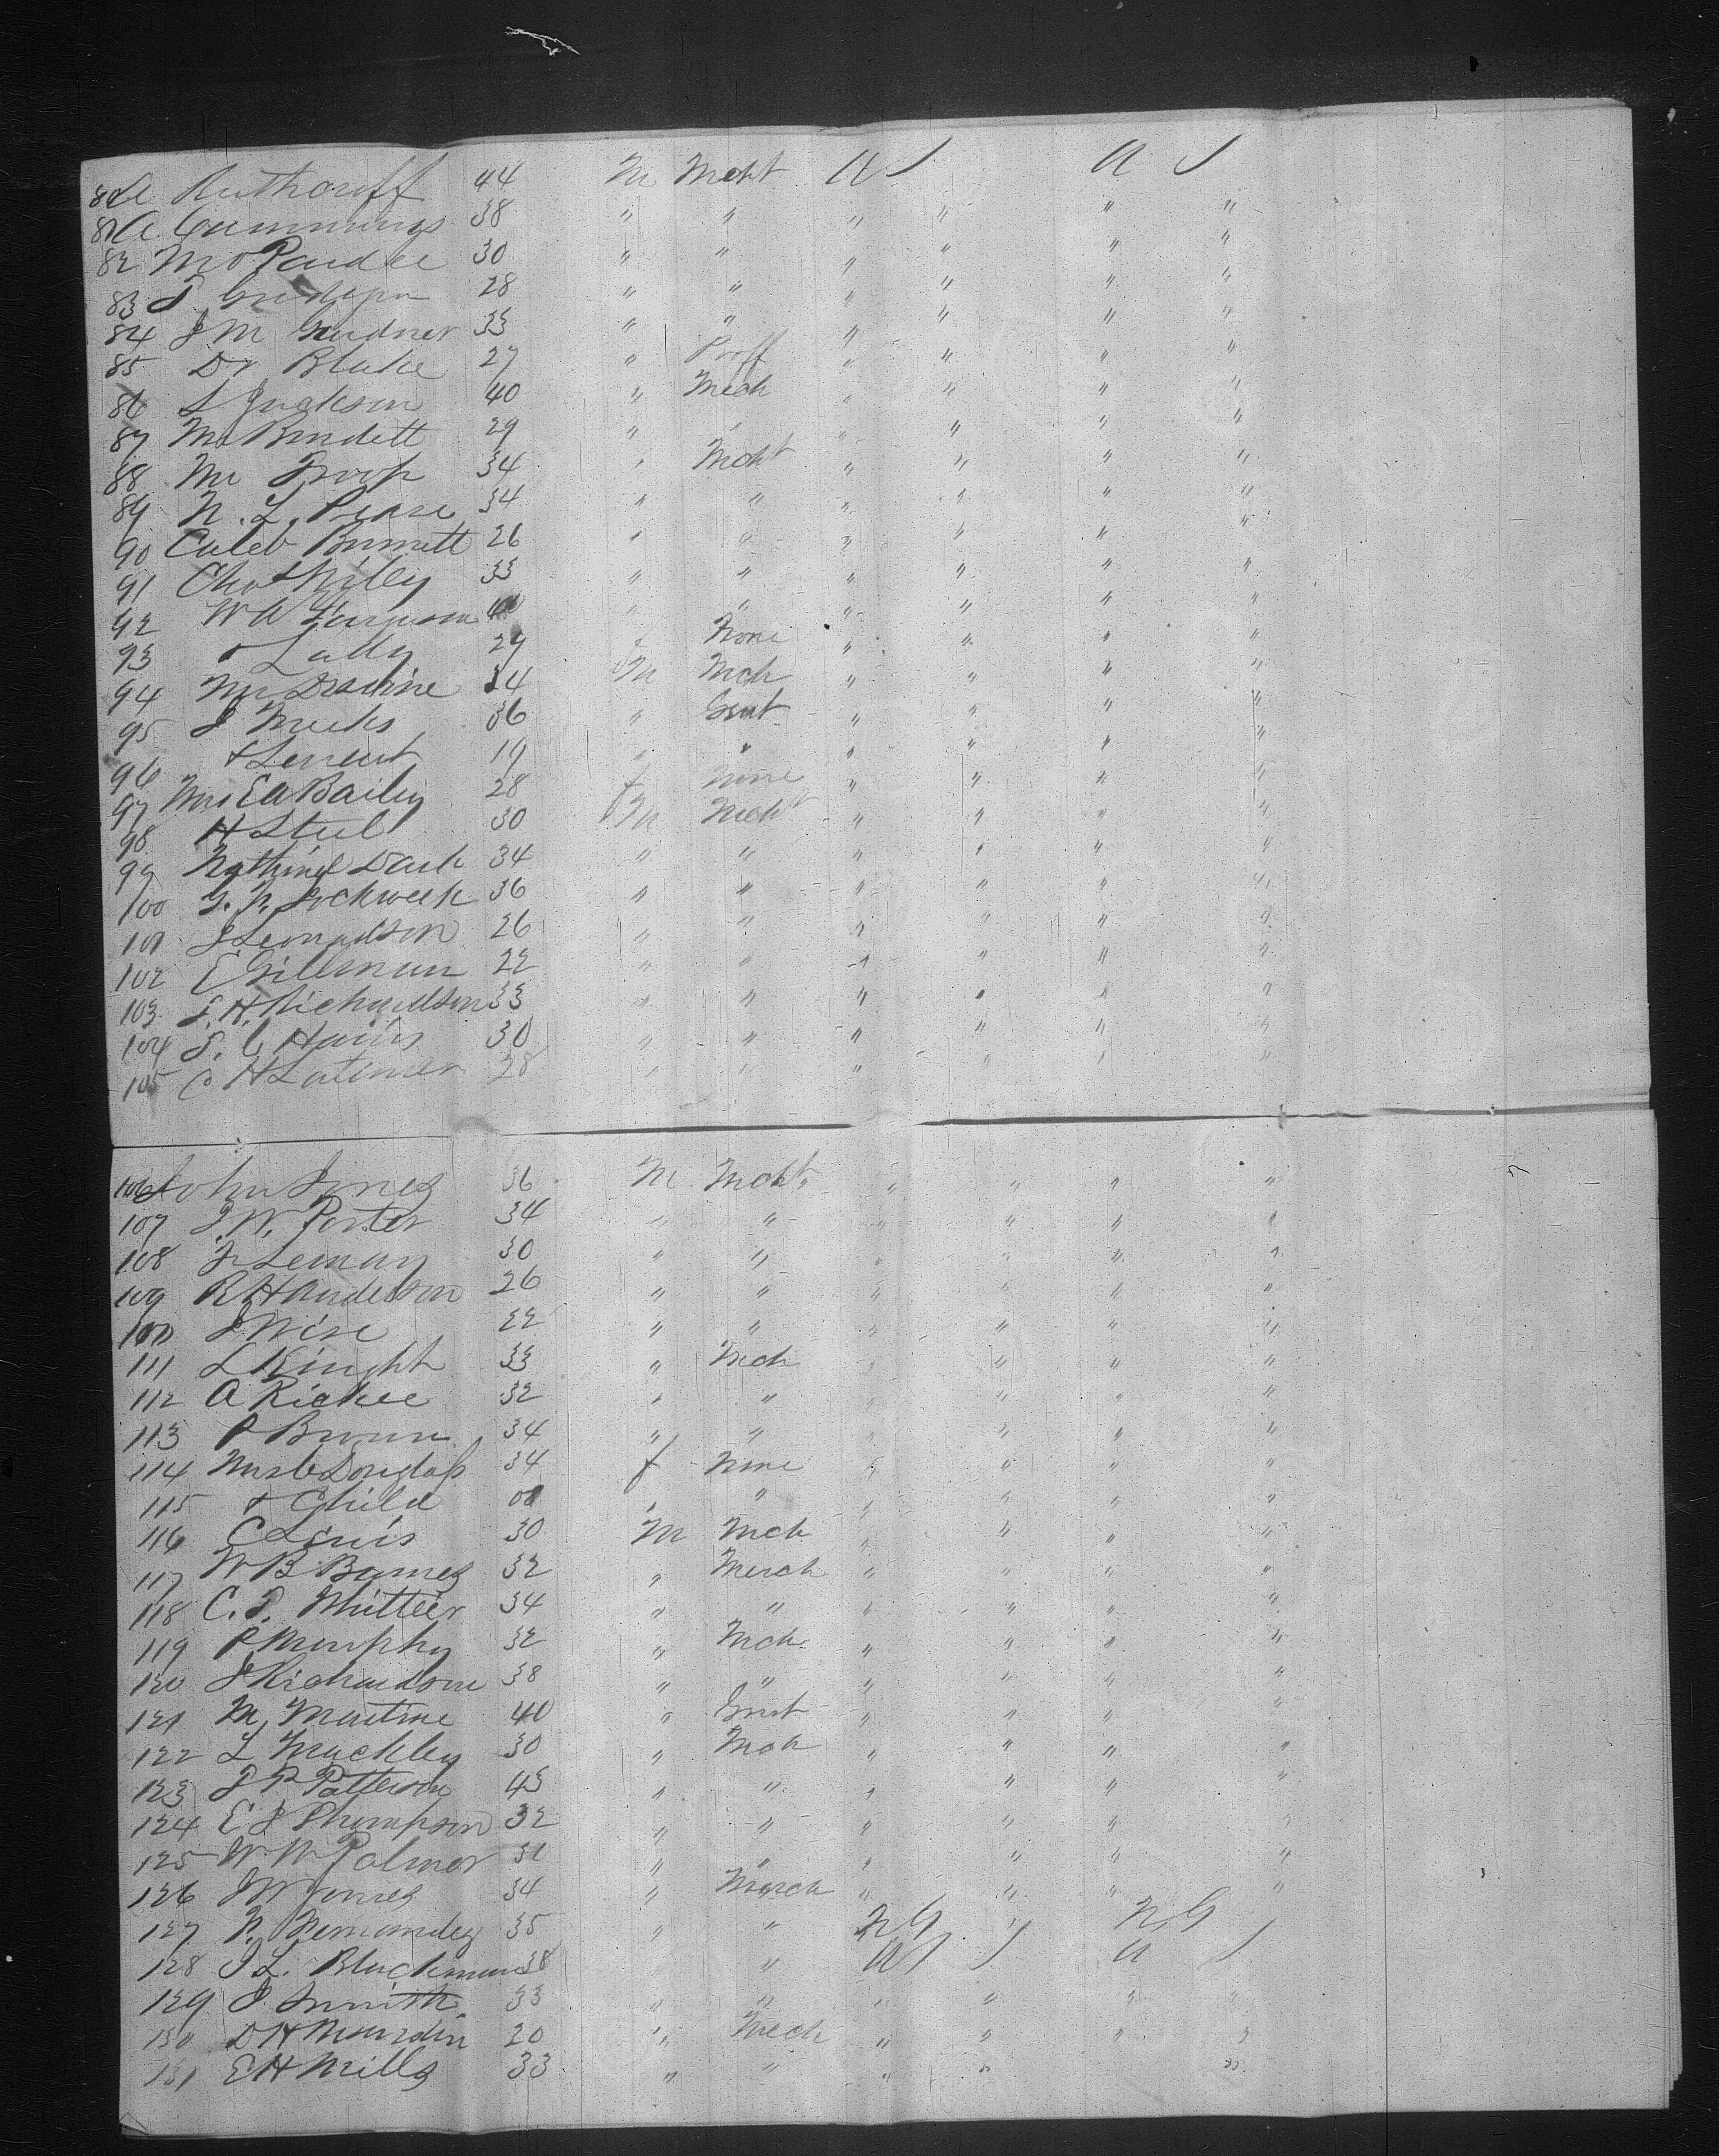 80 A Ruthcroff 44 M Mcht U S U S
81 A. Cummings 38 " " " " " "
82 M O Pardee 30 " " " " " "
83 S 28 " " " " " "
84 J M Gardner 33 " " " " " "
85 Dr Blake 27 " Proff " " " "
86 S Jackson 40 " Mech " " " "
87 Mr Burdett 29 " " " " " "
88 Mr Troop 34 " Mcht " " " "
89 N. L. Pease 34 " " " " " "
90 Caleb Burnett 26 " " " " " "
91 Chas Wiley 33 " " " " " "
92 W A Ferguson " " " " " "
93 & Lady 29 f None " " " "
94 Mr Devine 34 M Mch " " " "
95 J Meeks 36 " Gent " " " "
96 & Servent 19 " " " " " "
97 Mrs E A Bailey 28 f None " " " "
98 H Steel 30 M Mcht " " " "
99 Nathinel Dark 34 " " " " " "
100 G. N. Lockweek 36 " " " " " "
101 J Leonardson 26 " " " " " "
102 E Gillman 22 " " " " " "
103 S. H. Richardson 33 " " " " " "
104 S. C Hains 30 " " " " " "
105 C H Latimer 28 " " " " " "
106 John Jones 36 M Mcht " " " "
107 J. W. Porter 34 " " " " " "
108 Fr Leman 30 " " " " " "
109 R H Anderson 26 " " " " " "
110 J Wise 22 " " " " " "
111 L Kinght 33 " Mch " " " "
112 A Rickee 32 " " " " " "
113 P Brown 34 " " " " " "
114 Mrs C Douglass 34 f None " " " "
115 & Child " " " " " "
116 C Lewis 30 M Mch " " " "
117 W B Barnes 32 " Merch " " " "
118 C. S. Whitteir 34 " " " " " "
119 P Murphy 32 " Mch " " " "
120 J Richardson 38 " " " " " "
121 M Martine 40 " Gent " " " "
122 L Mackley 30 " Mch " " " "
123 J P Patterson 43 " " " " " "
124 E J Thompson 32 " " " " " "
125 W W Palmer 31 " " " " " "
126 J W Jones 34 " Merch " " " "
127 N. Fernandez 35 " " N G " N G
128 J L. Blackman 38 " " U S U S
129 J Smith 33 " " " " " "
130 D H Mourdin 20 " Mech " " " "
131 E H Mills 33 " " " " "